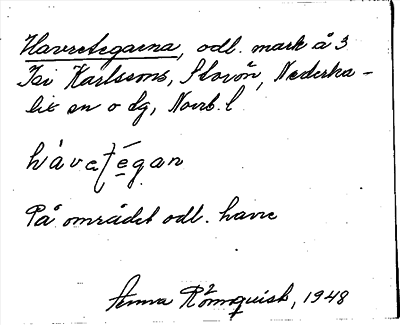 Havretegarna, odl. mark å 3
Karlssons, Storön, Nederka-
lix sn o lg, Norrb. l.
håvatégan
På området odl. havre
Anna Rönnquist, 1948